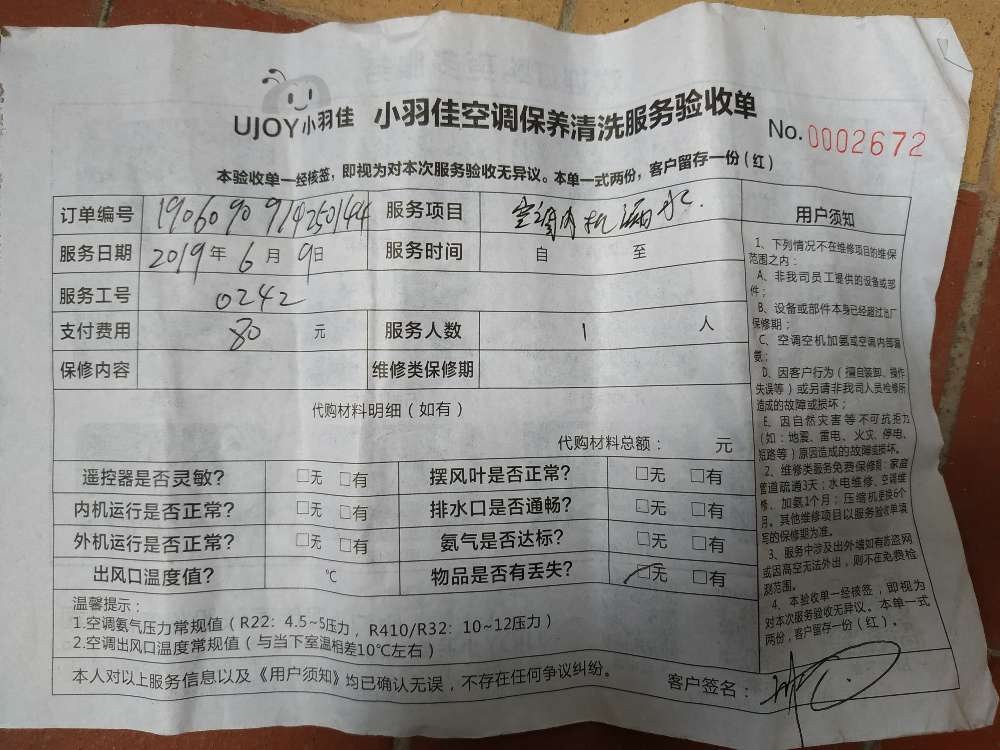 UJOY小羽佳 小羽佳空调保养清洗服务验收单 No.0002672
本验收单一经核签，即视为对本次服务验收无异议。本单一式两份，客户留存一份（红）
订单编号 190609091425014 服务项目 空调内机漏水.
服务日期 2019年6月9日 服务时间 自 至
服务工号 0242
支付费用 80 元 服务人数 1 人
保修内容 维修类保修期
代购材料明细（如有）
代购材料总额： 元
遥控器是否灵敏? □无 □有 摆风叶是否正常? □无 □有
内机运行是否正常? □无 □有 排水口是否通畅? □无 □有
外机运行是否正常? □无 □有 氨气是否达标? □无 □有
出风口温度值? ℃ 物品是否有丢失? □无 □有
温馨提示：
1.空调氨气压力常规值（R22：4.5~5压力，R410/R32：10~12压力）
2.空调出风口温度常规值（与当下室温相差10℃左右）
本人对以上服务信息以及《用户须知》均已确认无误，不存在任何争议纠纷。
客户签名：
用户须知
1、下列情况不在维修项目的维保
范围之内：
A、非我司员工提供的设备或部
件；
B、设备或部件本身已经超过出厂
保修期；
C、空调空机加氨或空调内部漏
氨；
D、因客户行为（擅自装卸、操作
失误等）或另请非我司人员检修所
造成的故障或损坏；
E、因自然灾害等不可抗拒力
（如：地震、雷电、火灾、停电、
短路等）原因造成的故障或损坏。
2、维修类服务免费保修期：家庭
管道疏通3天；水电维修、空调维
修、加氨1个月；压缩机更换6个
月。其他维修项目以服务验收单填
写的保修期为准。
3、服务中涉及出外墙如有防盗网
或因高空无法外出，则不在免费检
测范围。
4、本验收单一经核签，即视为
对本次服务验收无异议。本单一式
两份，客户留存一份（红）。